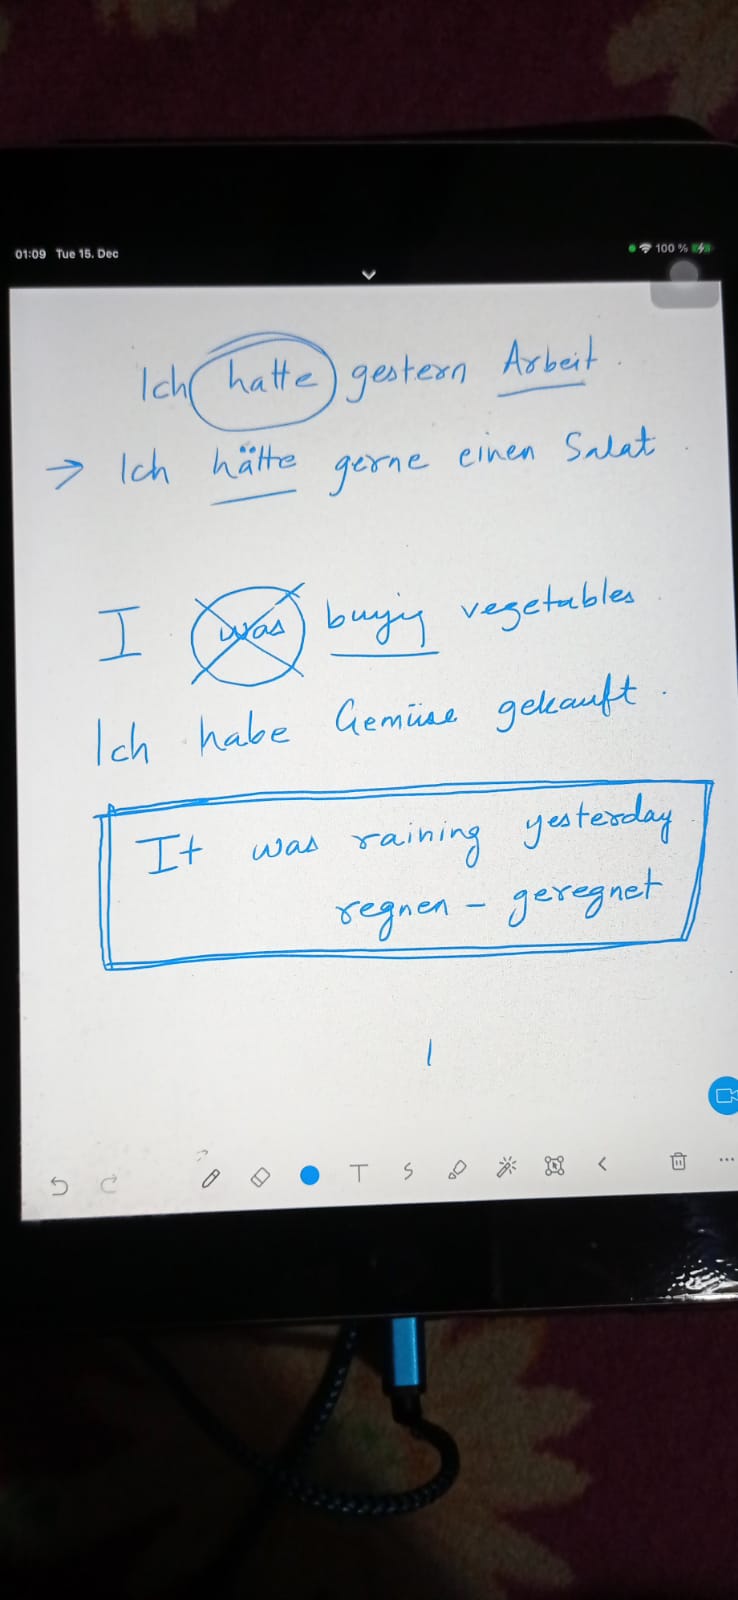 01:09 Tue 15. Dec 100 %
Ich hatte gestern Arbeit.
→ Ich hätte gerne einen Salat.
I was buyig vegetables.
Ich habe Gemüse gekauft.
It was raining yesterday
regnen - geregnet
T